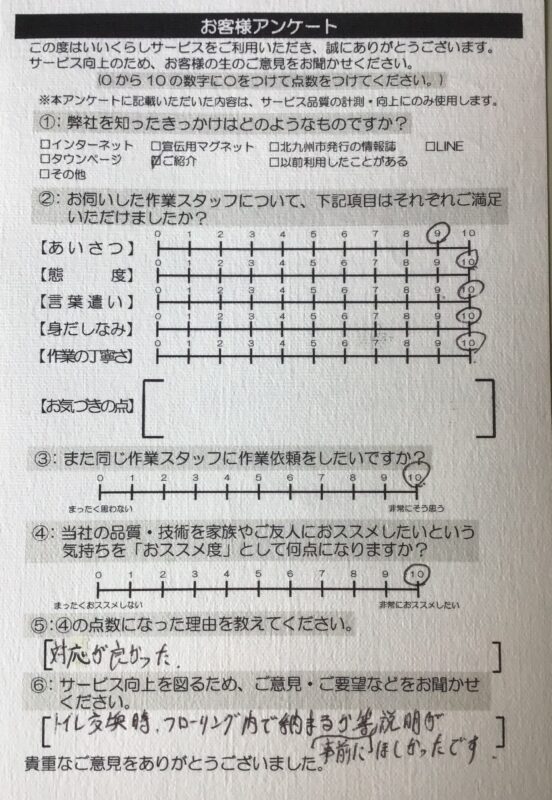 お客様アンケート
この度はいいくらしサービスをご利用いただき、誠にありがとうございます。
サービス向上のため、お客様の生のご意見をお聞かせください。
(0から10の数字に○をつけて点数をつけてください。)
※本アンケートに記載いただいた内容は、サービス品質の計測・向上にのみ使用します。
①：弊社を知ったきっかけはどのようなものですか？
□インターネット □宣伝用マグネット □北九州市発行の情報誌 □LINE
□タウンページ ☑ご紹介 □以前利用したことがある
□その他
②：お伺いした作業スタッフについて、下記項目はそれぞれご満足
いただけましたか？
【あいさつ】 0 1 2 3 4 5 6 7 8 9 10
【態度】 0 1 2 3 4 5 6 7 8 9 10
【言葉遣い】 0 1 2 3 4 5 6 7 8 9 10
【身だしなみ】 0 1 2 3 4 5 6 7 8 9 10
【作業の丁寧さ】 0 1 2 3 4 5 6 7 8 9 10
【お気づきの点】
③：また同じ作業スタッフに作業依頼をしたいですか？
0 1 2 3 4 5 6 7 8 9 10
まったく思わない 非常にそう思う
④：当社の品質・技術を家族やご友人におススメしたいという
気持ちを「おススメ度」として何点になりますか？
0 1 2 3 4 5 6 7 8 9 10
まったくおススメしない 非常におススメしたい
⑤：④の点数になった理由を教えてください。
対応が良かった.
⑥：サービス向上を図るため、ご意見・ご要望などをお聞かせ
ください。
トイレ交換時、フローリング内で納まるか等説明が
事前にほしかったです.
貴重なご意見をありがとうございました。